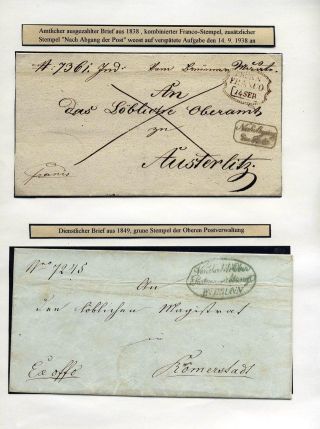 Amtlicher ausgezahlter Brief aus 1838 , kombinierter Franco-Stempel, zusätzlicher
Stempel "Nach Abgang der Post" weist auf verspätete Aufgabe den 14. 9. 1938 an
N. 7361. Ind: vom Brünner
BRÜNN
FRANCO
14 SEP
An
das Löbliche Oberamt
zu
Austerlitz
franco
Nach Abgang
der Post
Dienstlicher Brief aus 1849, grune Stempel der Oberen Postverwaltung
Nro 7245
An
den löblichen Magistrat
in
Ex offo
Römerstadt